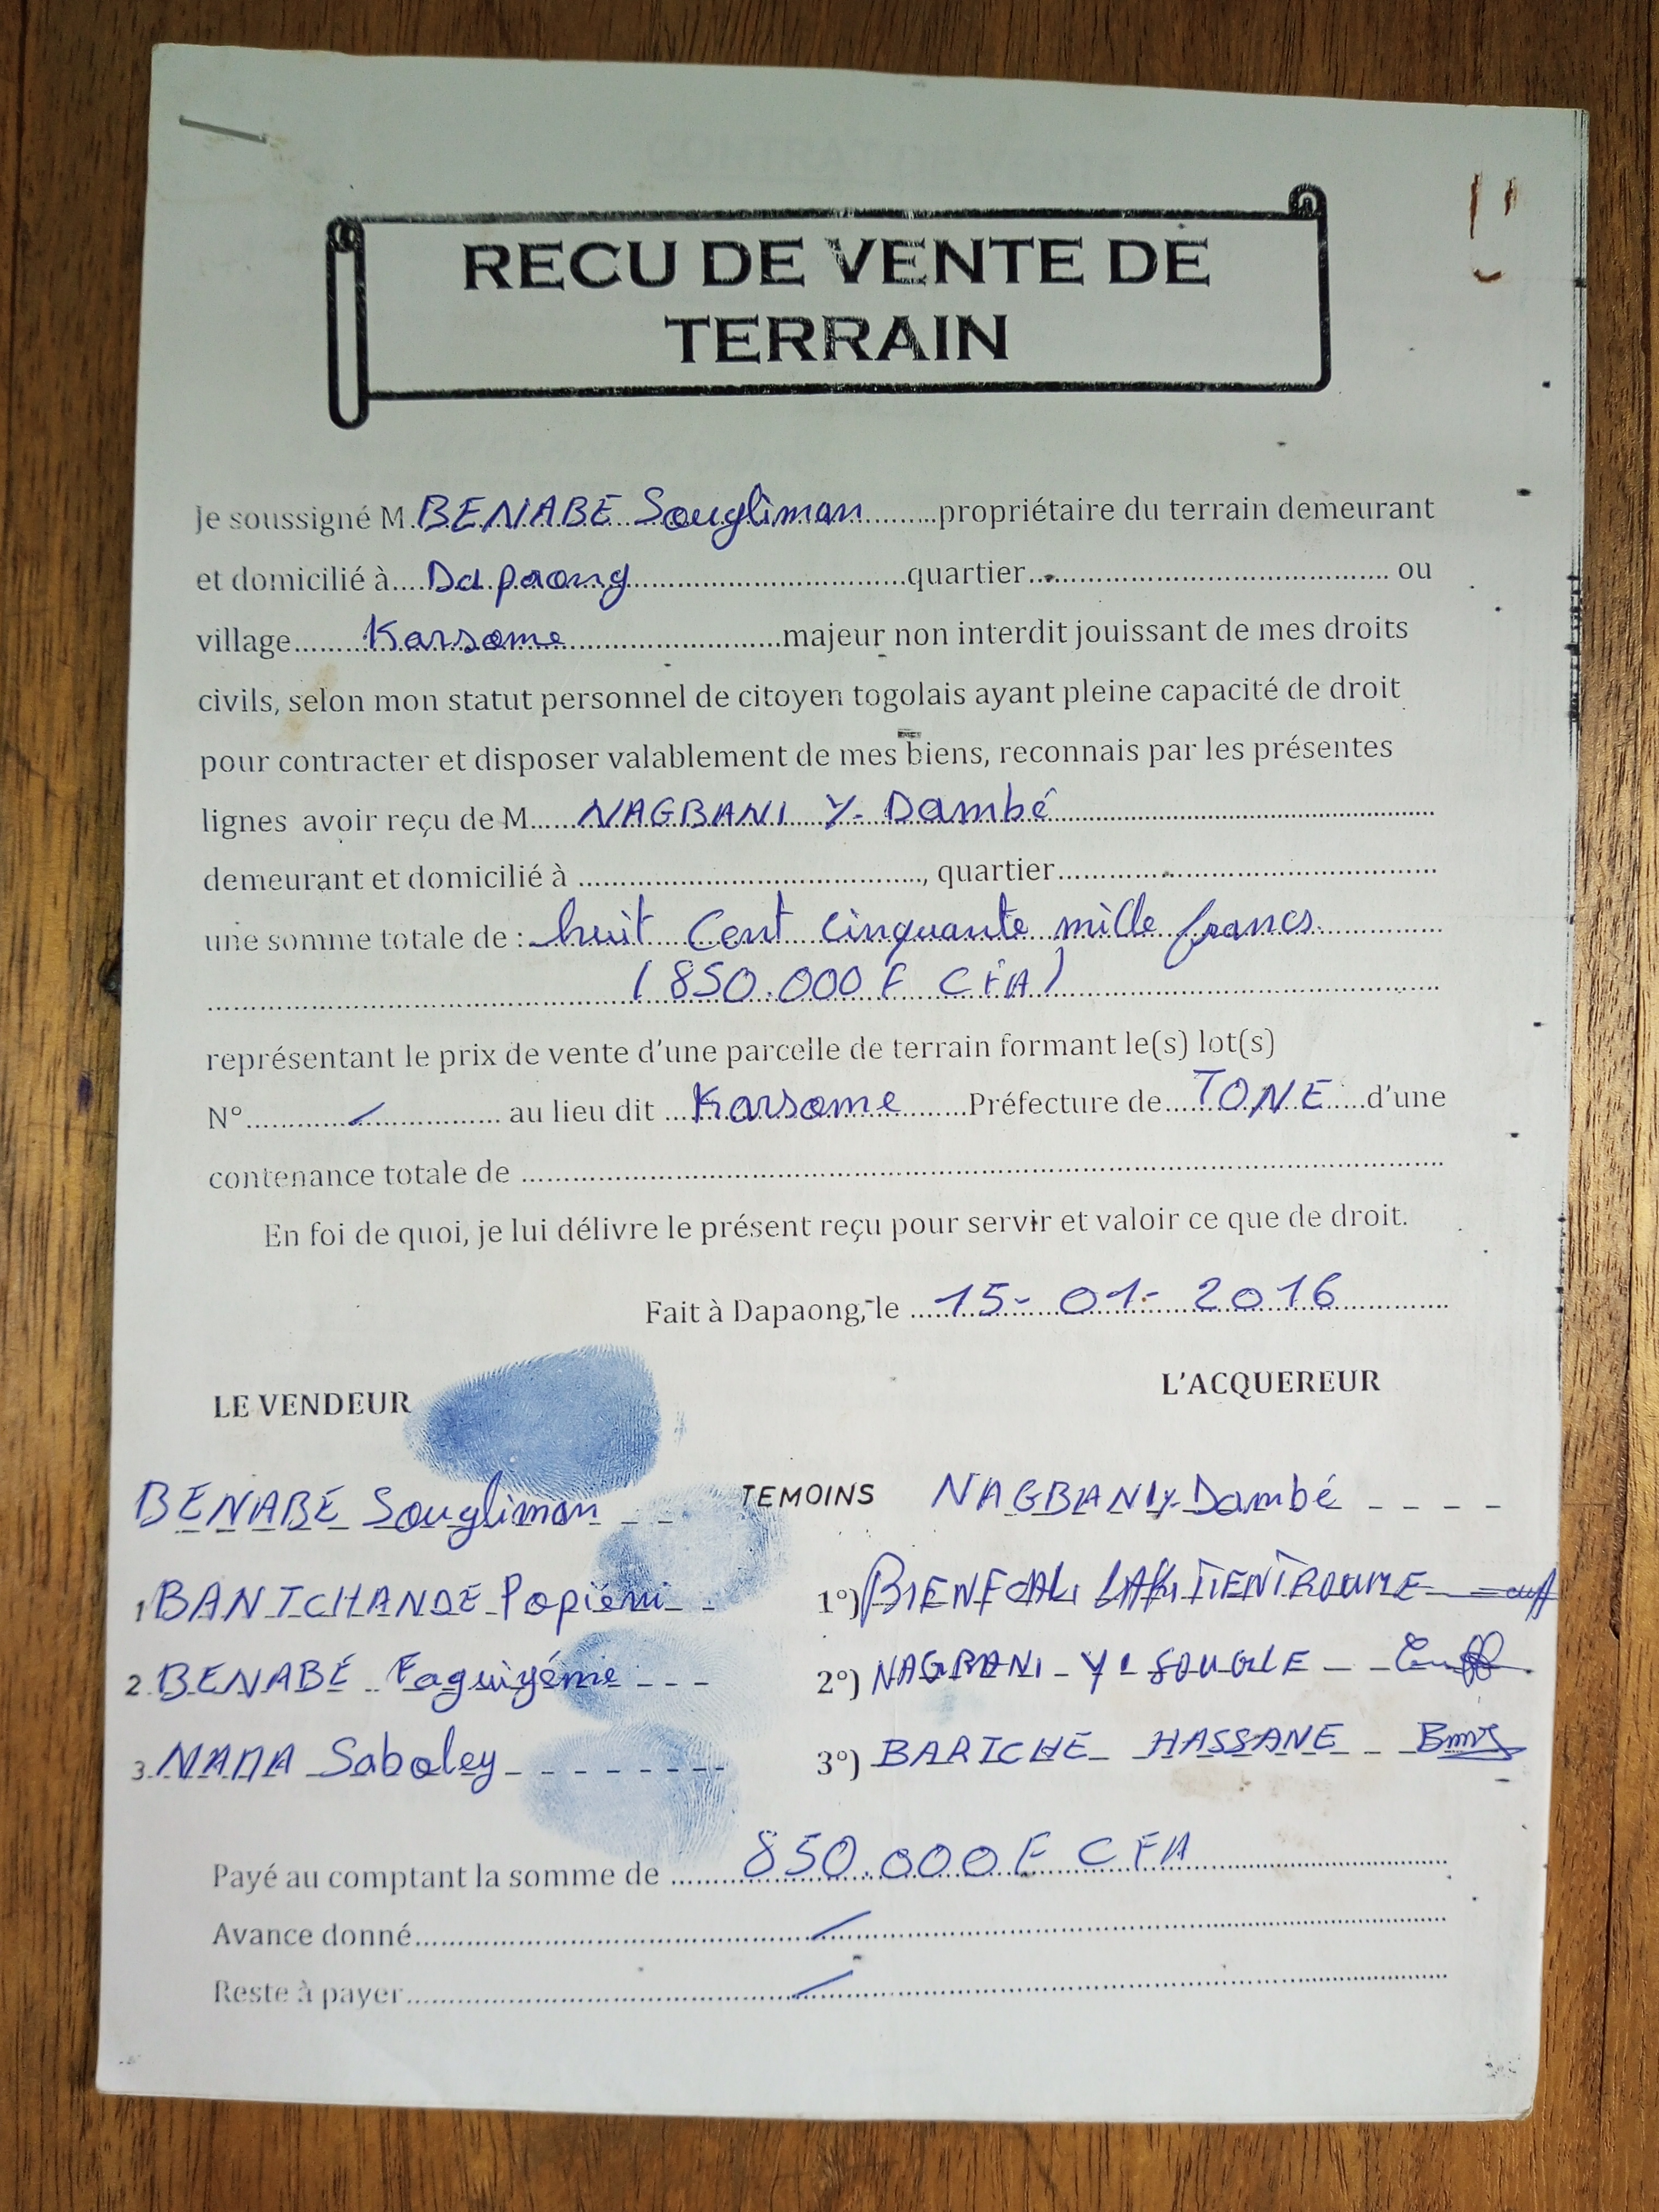 RECU DE VENTE DE
TERRAIN
Je soussigné M. BENABE Sougliman propriétaire du terrain demeurant
et domicilié à Dapaong quartier ou
village Karsome majeur non interdit jouissant de mes droits
civils, selon mon statut personnel de citoyen togolais ayant pleine capacité de droit
pour contracter et disposer valablement de mes biens, reconnais par les présentes
lignes avoir reçu de M NAGBANI Y. Dambé
demeurant et domicilié à , quartier
une somme totale de : huit cent cinquante mille francs
(850.000 F CFA)
représentant le prix de vente d'une parcelle de terrain formant le(s) lot(s)
N° / au lieu dit Karsome Préfecture de TONE d'une
contenance totale de
En foi de quoi, je lui délivre le présent reçu pour servir et valoir ce que de droit.
Fait à Dapaong, le 15-01-2016
LE VENDEUR L'ACQUEREUR
BENABE Sougliman TEMOINS NAGBANI Y. Dambé
1 BANTCHANDE Popiéni 1°)
2. BENABE Faguiyéme 2°) NAGBANI Y. SOUGLE
3. NANA Saboley 3°) BARICHE HASSANE
Payé au comptant la somme de 850.000 F CFA
Avance donné /
Reste à payer /